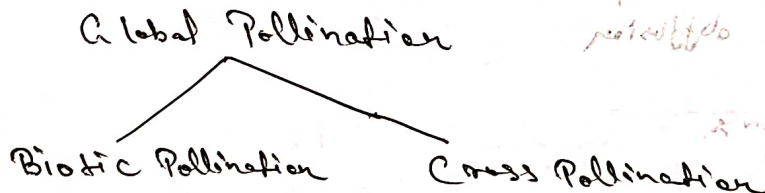 Global Pollination
Biotic Pollination Cross Pollination